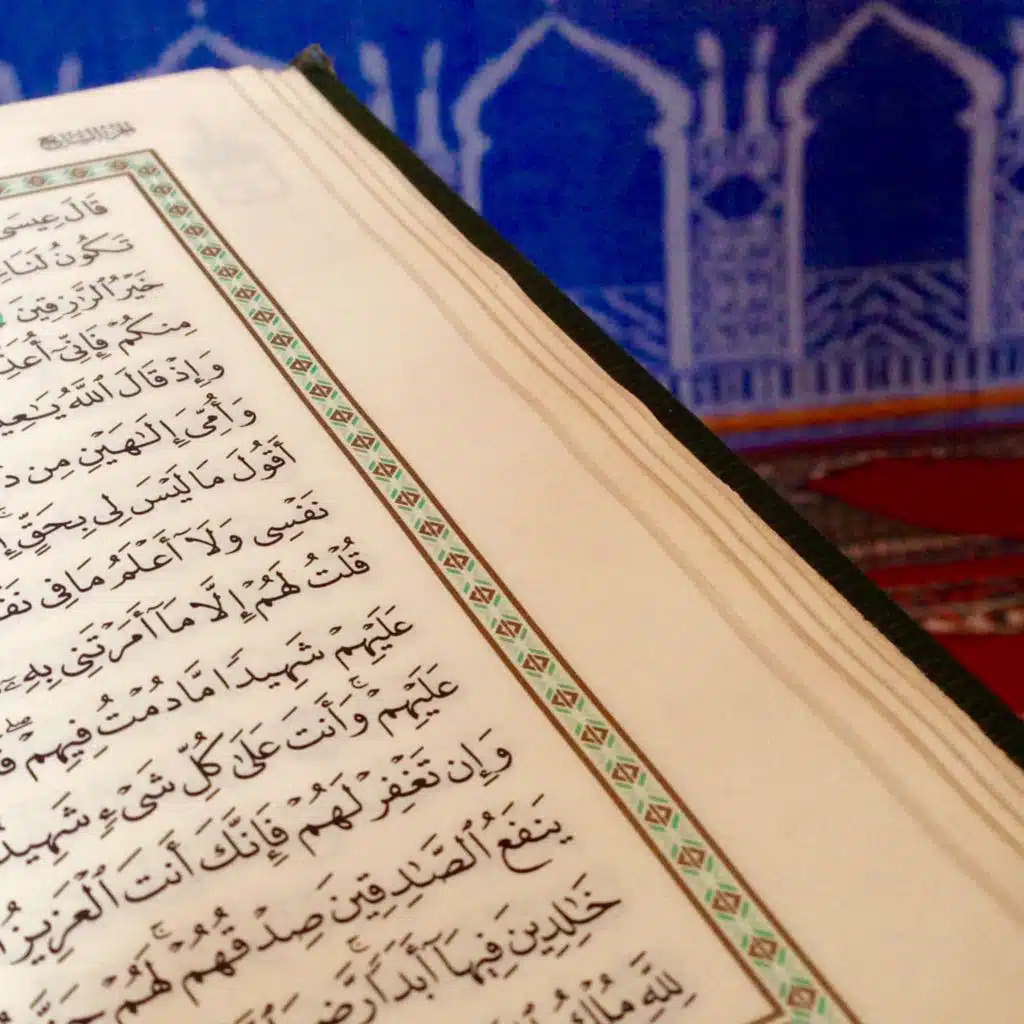 الجزء السابع
قَالَ عِيسَى
تَكُونُ لَنَا
خَيْرُ ٱلرَّٰزِقِينَ
مِنكُمْ فَإِنِّىٓ أُعَذِّ
وَإِذْ قَالَ ٱللَّهُ يَٰعِي
وَأُمِّىَ إِلَٰهَيْنِ مِن د
أَقُولَ مَا لَيْسَ لِى بِحَقٍّ ۚ إِ
نَفْسِى وَلَآ أَعْلَمُ مَا فِى نَفْ
قُلْتُ لَهُمْ إِلَّا مَآ أَمَرْتَنِى بِهِۦٓ
عَلَيْهِمْ شَهِيدًا مَّا دُمْتُ فِيهِمْ ۖ فَ
عَلَيْهِمْ ۚ وَأَنتَ عَلَىٰ كُلِّ شَىْءٍ شَهِيدٌ
وَإِن تَغْفِرْ لَهُمْ فَإِنَّكَ أَنتَ ٱلْعَزِيزُ
يَنفَعُ ٱلصَّٰدِقِينَ صِدْقُهُمْ ۚ لَهُمْ جَنَّ
خَٰلِدِينَ فِيهَآ أَبَدًا ۚ رَّضِ
لِلَّهِ مُلْكُ